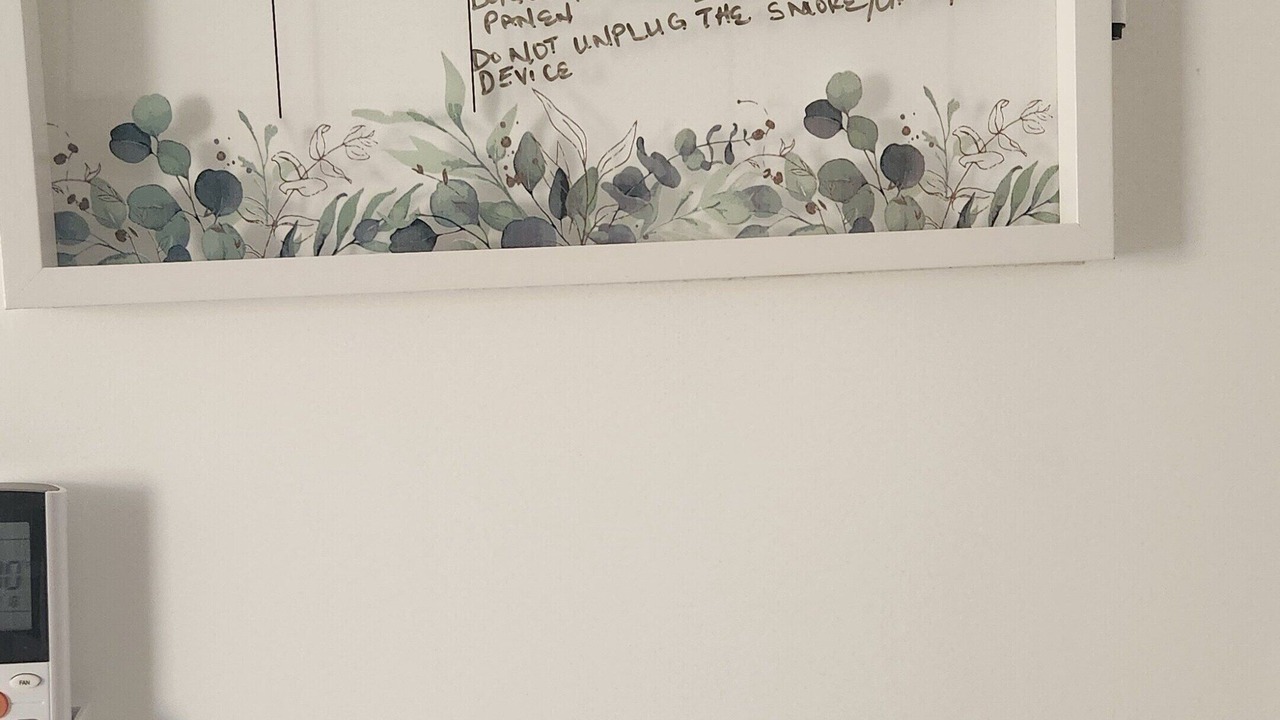 PANEN
DO NOT UNPLUG THE SMOKE/
DEVICE
FAN